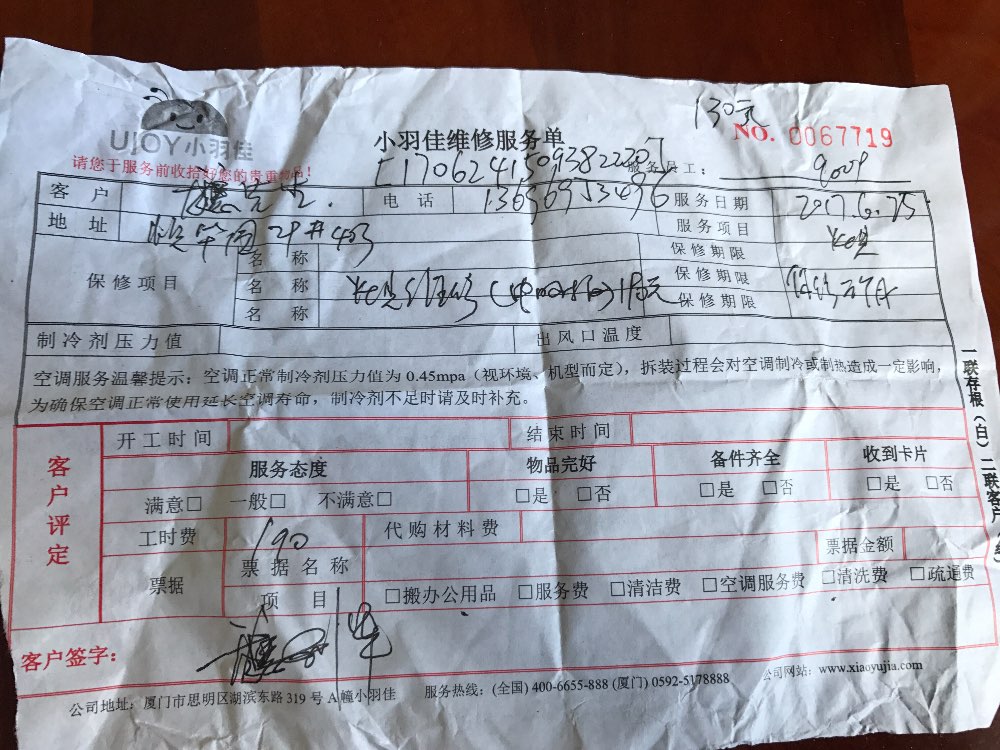 130元
UJOY小羽佳
小羽佳维修服务单
NO. 0067719
请您于服务前收拾好您的贵重物品!
[1706241509382220] 服务员工: 9009
客户 先生. 电话 13696953496 服务日期 2017.6.25
地址 服务项目
名称 保修期限
保修项目 名称 保修期限
名称 保修期限
制冷剂压力值 出风口温度
空调服务温馨提示:空调正常制冷剂压力值为0.45mpa(视环境、机型而定),拆装过程会对空调制冷或制热造成一定影响,
为确保空调正常使用延长空调寿命,制冷剂不足时请及时补充。
一联存根(白)二联客户
客户评定
开工时间 结束时间
服务态度 物品完好 备件齐全 收到卡片
满意□ 一般□ 不满意□ □是 □否 □是 □否 □是 □否
工时费 190 代购材料费
票据 票据名称 票据金额
项目 □搬办公用品 □服务费 □清洁费 □空调服务费 □清洗费 □疏通费
客户签字:
公司地址:厦门市思明区湖滨东路319号A幢小羽佳 服务热线:(全国) 400-6655-888 (厦门) 0592-5178888 公司网站:www.xiaoyujia.com